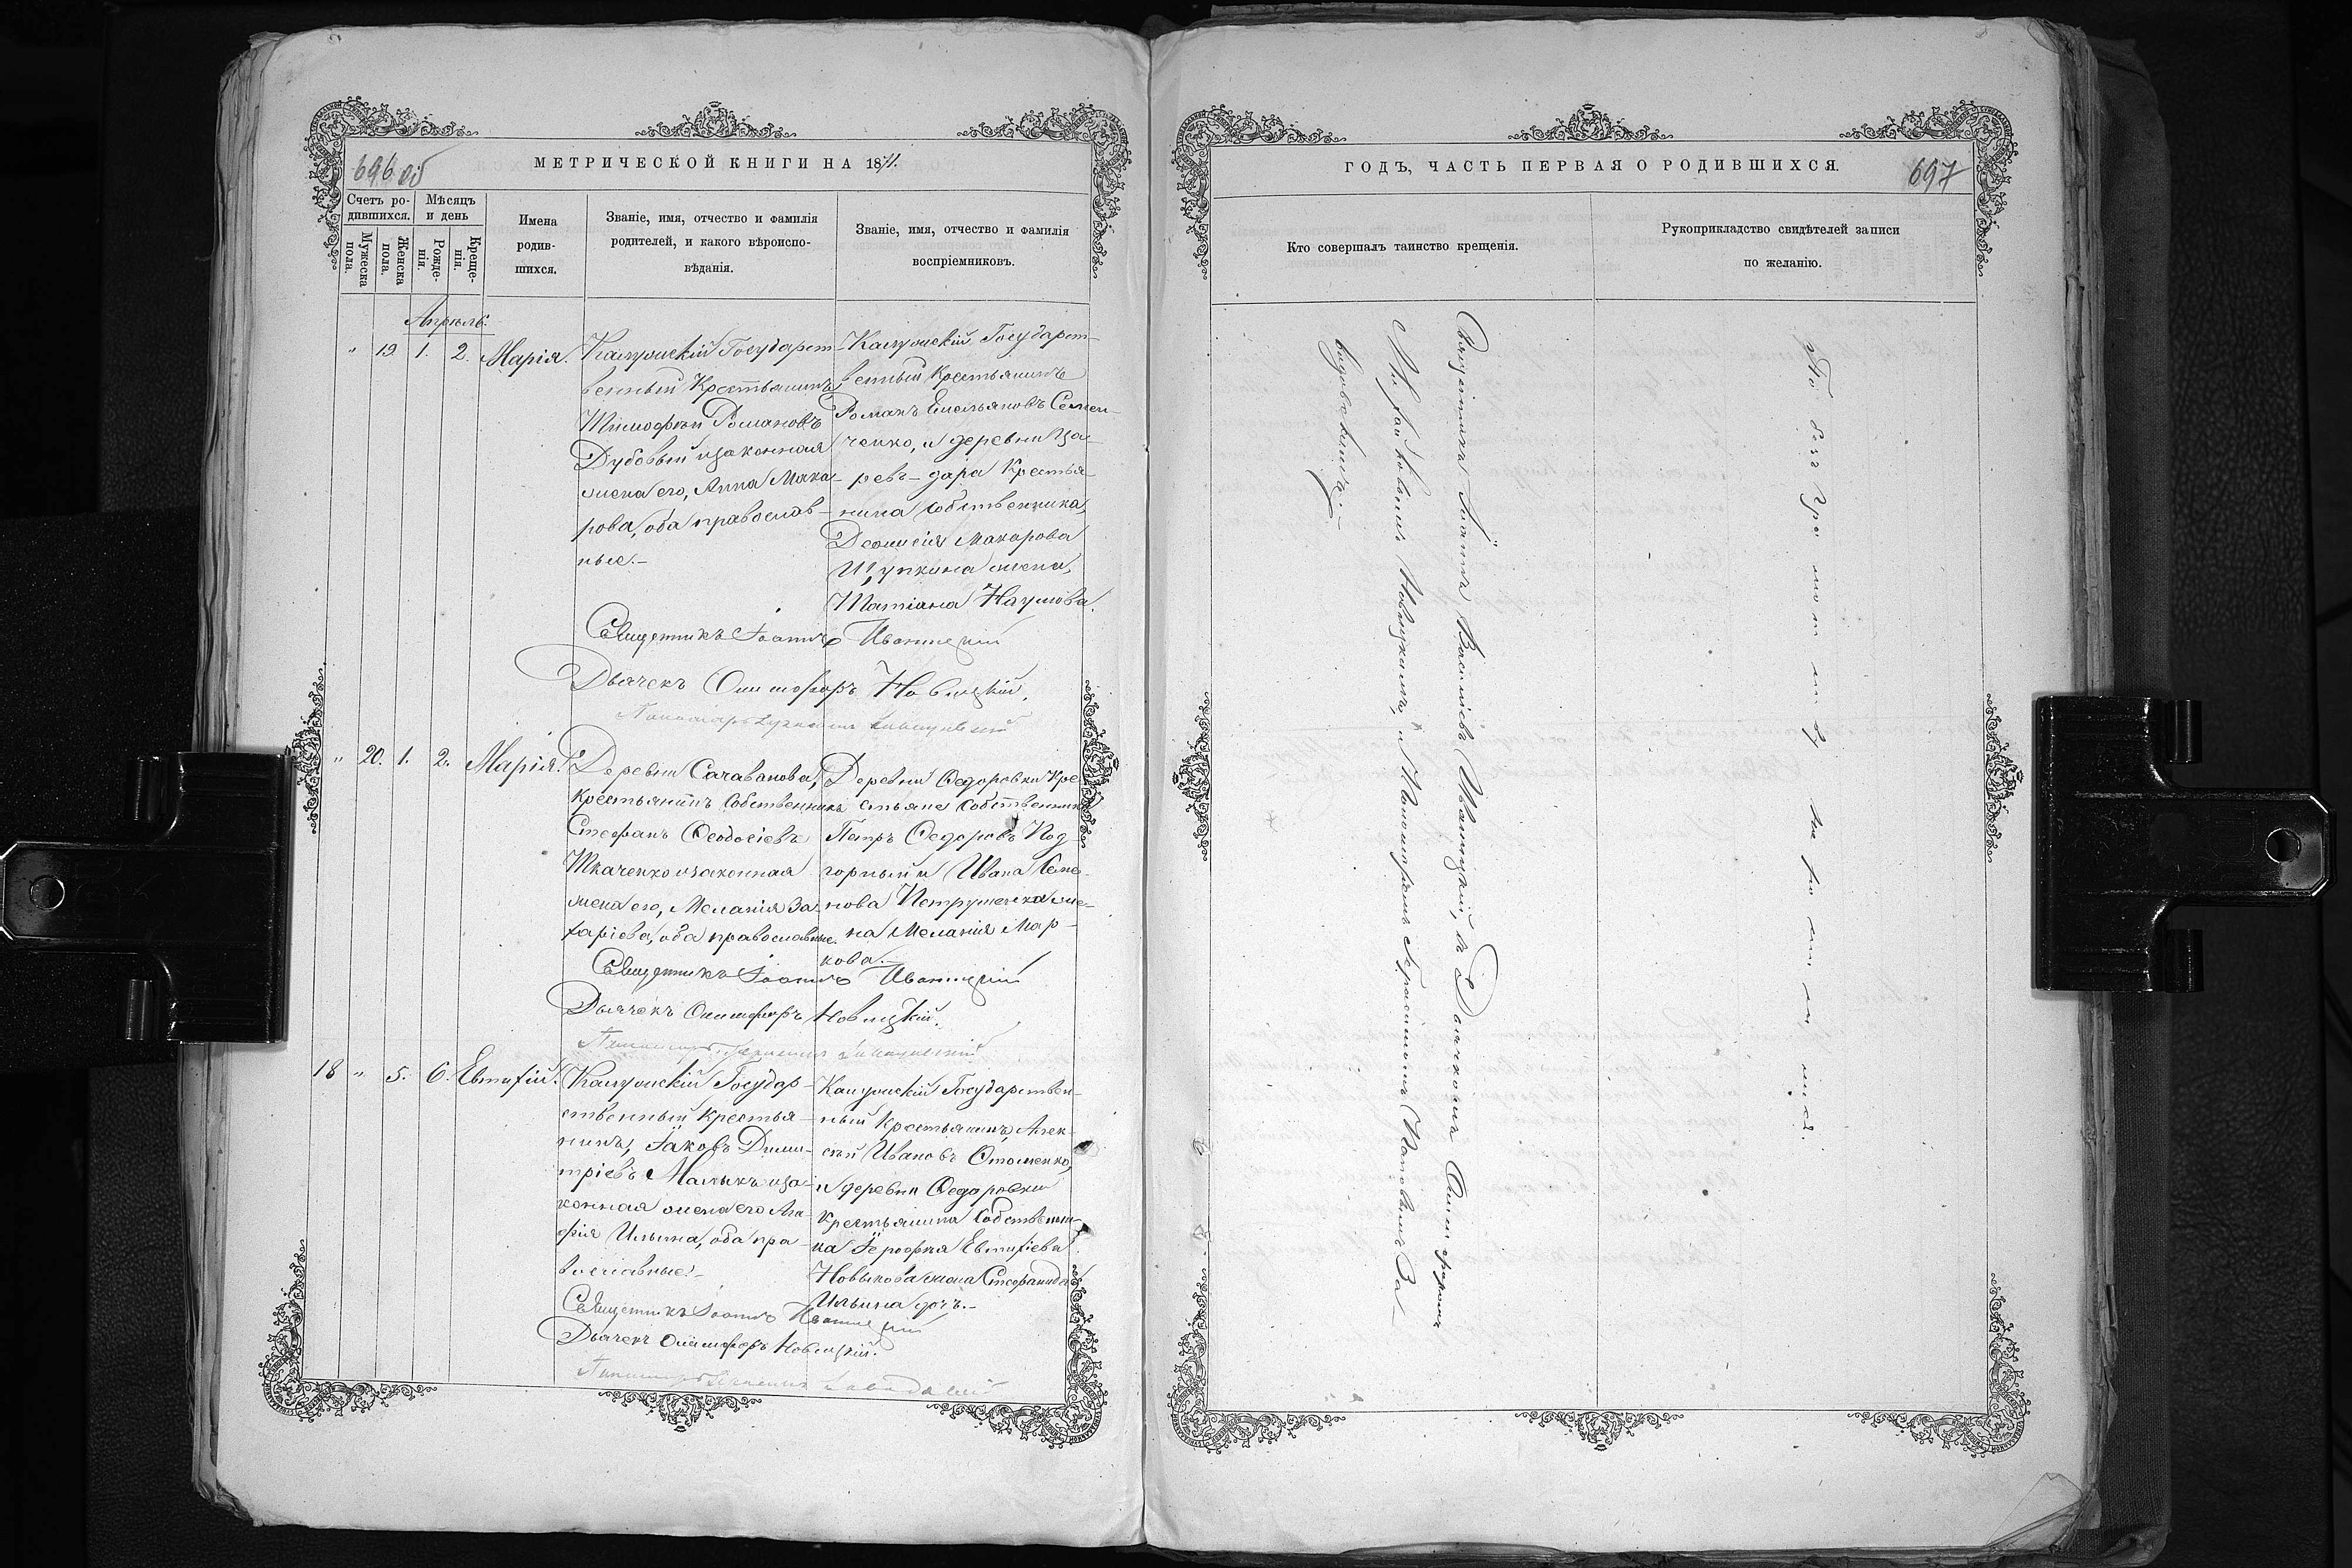 696 об
МЕТРИЧЕСКОЙ КНИГИ НА 1871.
Счетъ ро-
дившихся.
Мѣсяцъ
и день
Мужеска
пола.
Женска
пола.
Рожде-
нія.
Креще-
нія.
Имена
родив-
шихся.
Званіе, имя, отчество и фамилія
родителей, и какого вѣроиспо-
вѣданія.
Званіе, имя, отчество и фамилія
воспріемниковъ.
Апрѣль.
" 19 1. 2. Марія.
Государст-
венный Крестьянинъ
Тимофѣй Романовъ
Дубовый и законная
жена его, Анна Мака-
рова, оба православ-
ные.-
Государст-
венный Крестьянинъ
Романъ Емельяновъ Семен-
ченко, и деревни Ца-
ревъ-дара Крестья-
нина Собственника,
Деонисія Макарова
Щупкина жена,
Татіана Наумова.
Священникъ Іоаннъ Иваницкій
Дьячекъ Онисифоръ Новицкій.
Пономарь
" 20. 1. 2. Марія.
Деревни
Крестьянинъ Собственникъ
Стефанъ Ѳеодосіевъ
Ткаченко и законная
жена его, Меланія За-
харіева, оба православные.
Деревни Ѳедоровки Кре-
стьяне Собственники
Петръ Ѳедоровъ Под-
горный и Ивана Семе-
нова Петрушенка же-
на Меланія Мар-
кова.-
Священникъ Іоаннъ Иваницкій
Дьячекъ Онисифоръ Новицкій.
Пономарь
18 " 5. 6. Евтихій.
Государ-
ственный Крестья-
нинъ, Іаковъ Дими-
тріевъ и за-
конная жена его Ага-
фія Ильина, оба пра-
вославные.-
Государствен-
ный Крестьянинъ, Алек-
сѣй Ивановъ
и деревни Ѳедоровки
Крестьянина Собственни-
ка Іероѳея Евтихіева
Новикова жена Стефанида
Ильина дочь.-
Священникъ Іоаннъ Иваницкій
Дьячекъ Онисифоръ Новицкій.
Пономарь
ГОДЪ, ЧАСТЬ ПЕРВАЯ О РОДИВШИХСЯ.
697
Кто совершалъ таинство крещенія.
Рукоприкладство свидѣтелей записи
по желанію.
Священникъ Іоаннъ Василіевъ Иваницкій, съ Дьячкомъ Онисифоромъ
Новицкимъ, и Пономаремъ За-